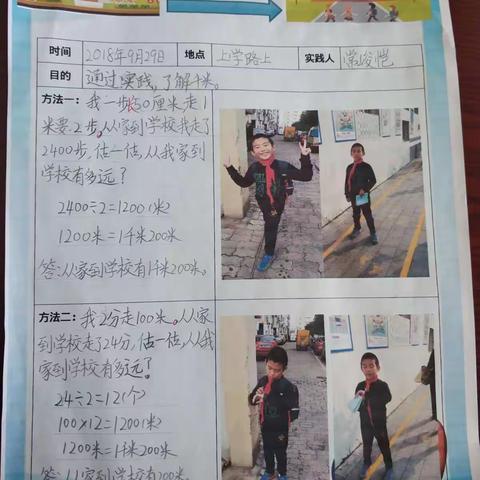 时间 2018年9月29日 地点 上学路上 实践人 常俊恺
目的 通过实践,了解千米。
方法一: 我一步长50厘米走1
米要2步。从家到学校我走了
2400步,估一估,从我家到
学校有多远?
2400÷2=1200(米)
1200米=1千米200米
答:从家到学校有1千米200米。
方法二: 我2分走100米。从家
到学校走了24分,估一估,从我
家到学校有多远?
24÷2=12(个)
100×12=1200(米)
1200米=1千米200米
答:从家到学校有200米。